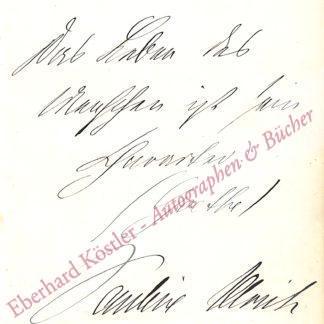 Das Leben des
Menschen ist sein
Charakter
Goethe
Eberhard Köstler - Autographen & Bücher
Pauline Ulrich